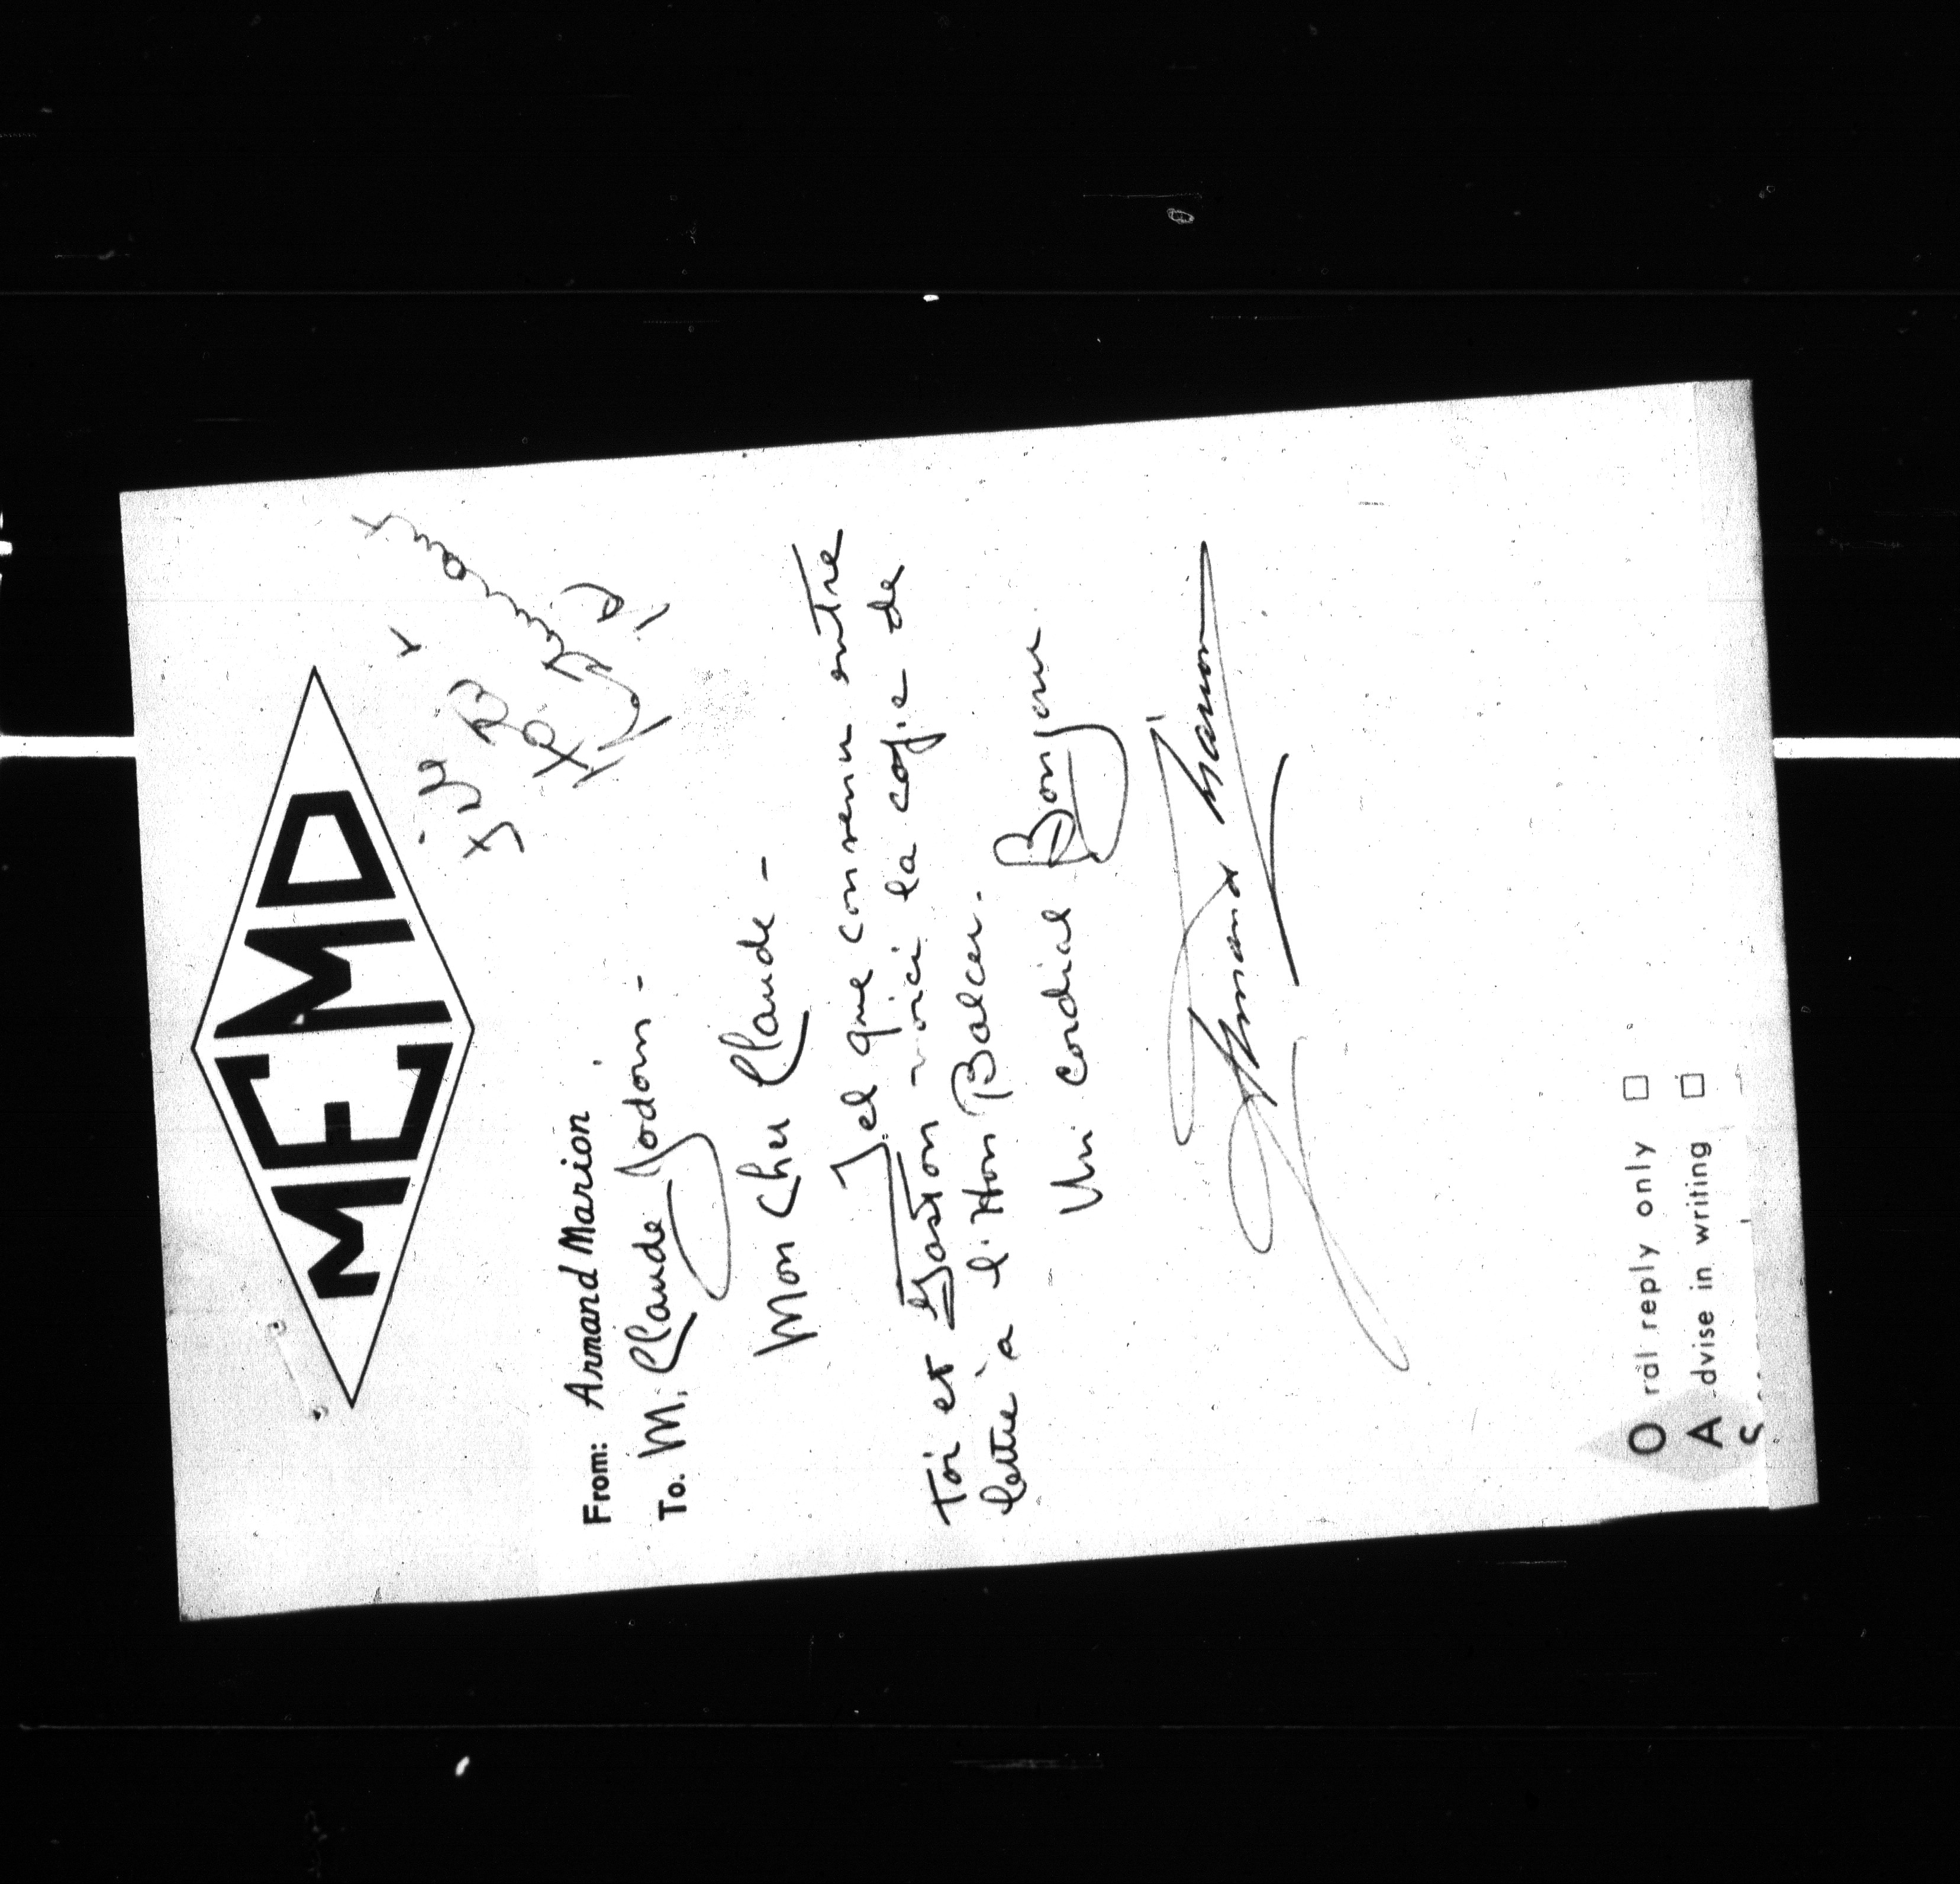 MEMO
From: Armand Marion
To. M. Claude Jodoin -
Mon cher Claude -
Tel que convenu entre
toi et Gaston voici la copie de
lettre à l'Hon Balcer.
Un cordial Bonjour
Armand Marion
Oral reply only
Advise in writing
S